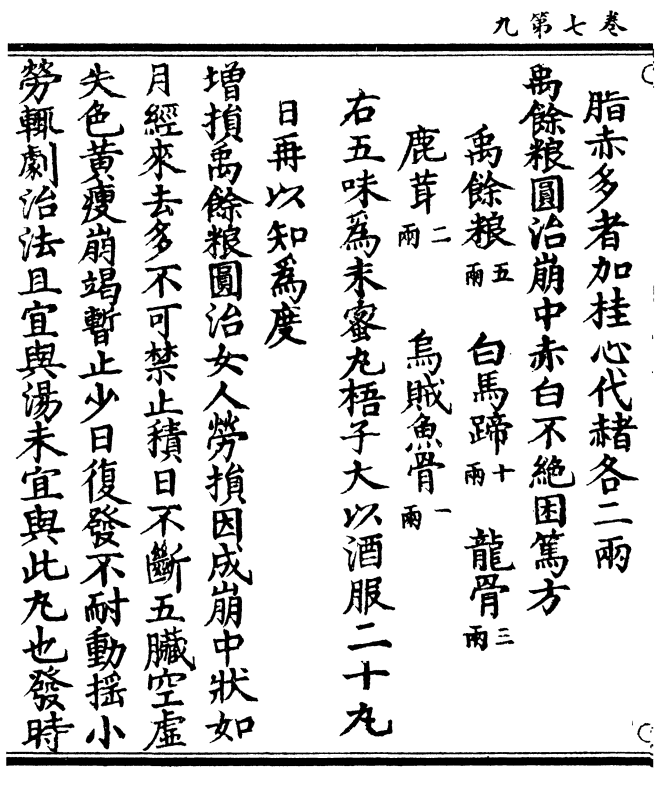 卷七第九
脂赤多者加桂心代赭各二兩
禹餘粮圓治崩中赤白不絶困篤方
禹餘粮五兩 白馬蹄十兩 龍骨三兩
鹿茸二兩 烏賊魚骨一兩
右五味爲末蜜丸梧子大以酒服二十丸
日再以知爲度
增損禹餘粮圓治女人勞損因成崩中狀如
月經來去多不可禁止積日不斷五臟空虛
失色黃瘦崩竭暫止少日復發不耐動揺小
勞輒劇治法且宜與湯未宜與此丸也發時